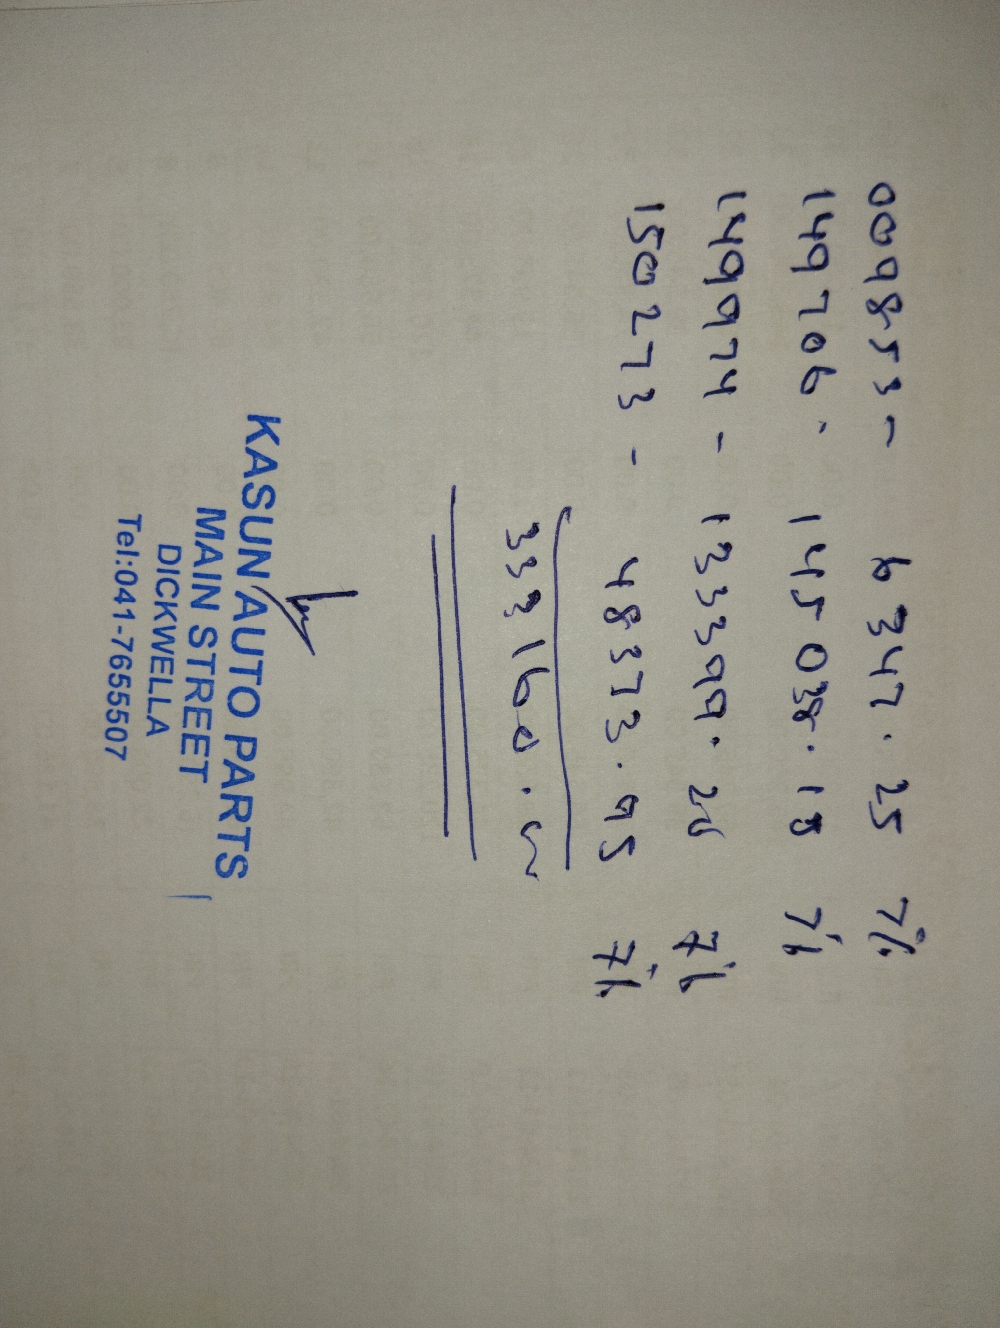 009853 - 6347.25 7%
149706 - 145038.18 7%
149974 - 133399.26 7%
150273 - 48373.95 7%
333160.
KASUN AUTO PARTS
MAIN STREET
DICKWELLA
Tel:041-7655507